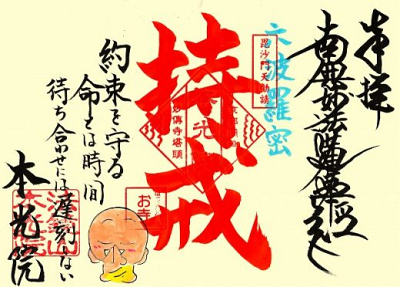 奉拝
南無妙法蓮華経
六波羅密
毘沙門天勧請
持戒
本光
妙傳寺塔頭
お寺
約束を守る
命とは時間
待ち合わせには遅刻しない
本光院